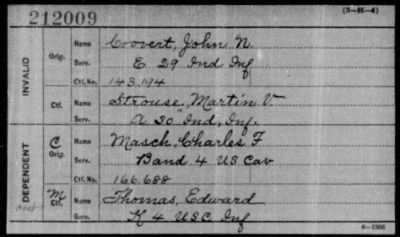 212009
(3-H-4)
INVALID
Orig.
Name Coovert, John N.
Serv. E 29 Ind Inf
Ctf. No. 143,194
Ctf.
Name Strouse, Martin V.
Serv. A 30 Ind, Inf.
DEPENDENT
C
Orig.
Name Masch, Charles F
Serv. Band 4 US Cav
Ctf. No. 166,688
M
Ctf.
Name Thomas, Edward
Serv. K 4 USC Inf